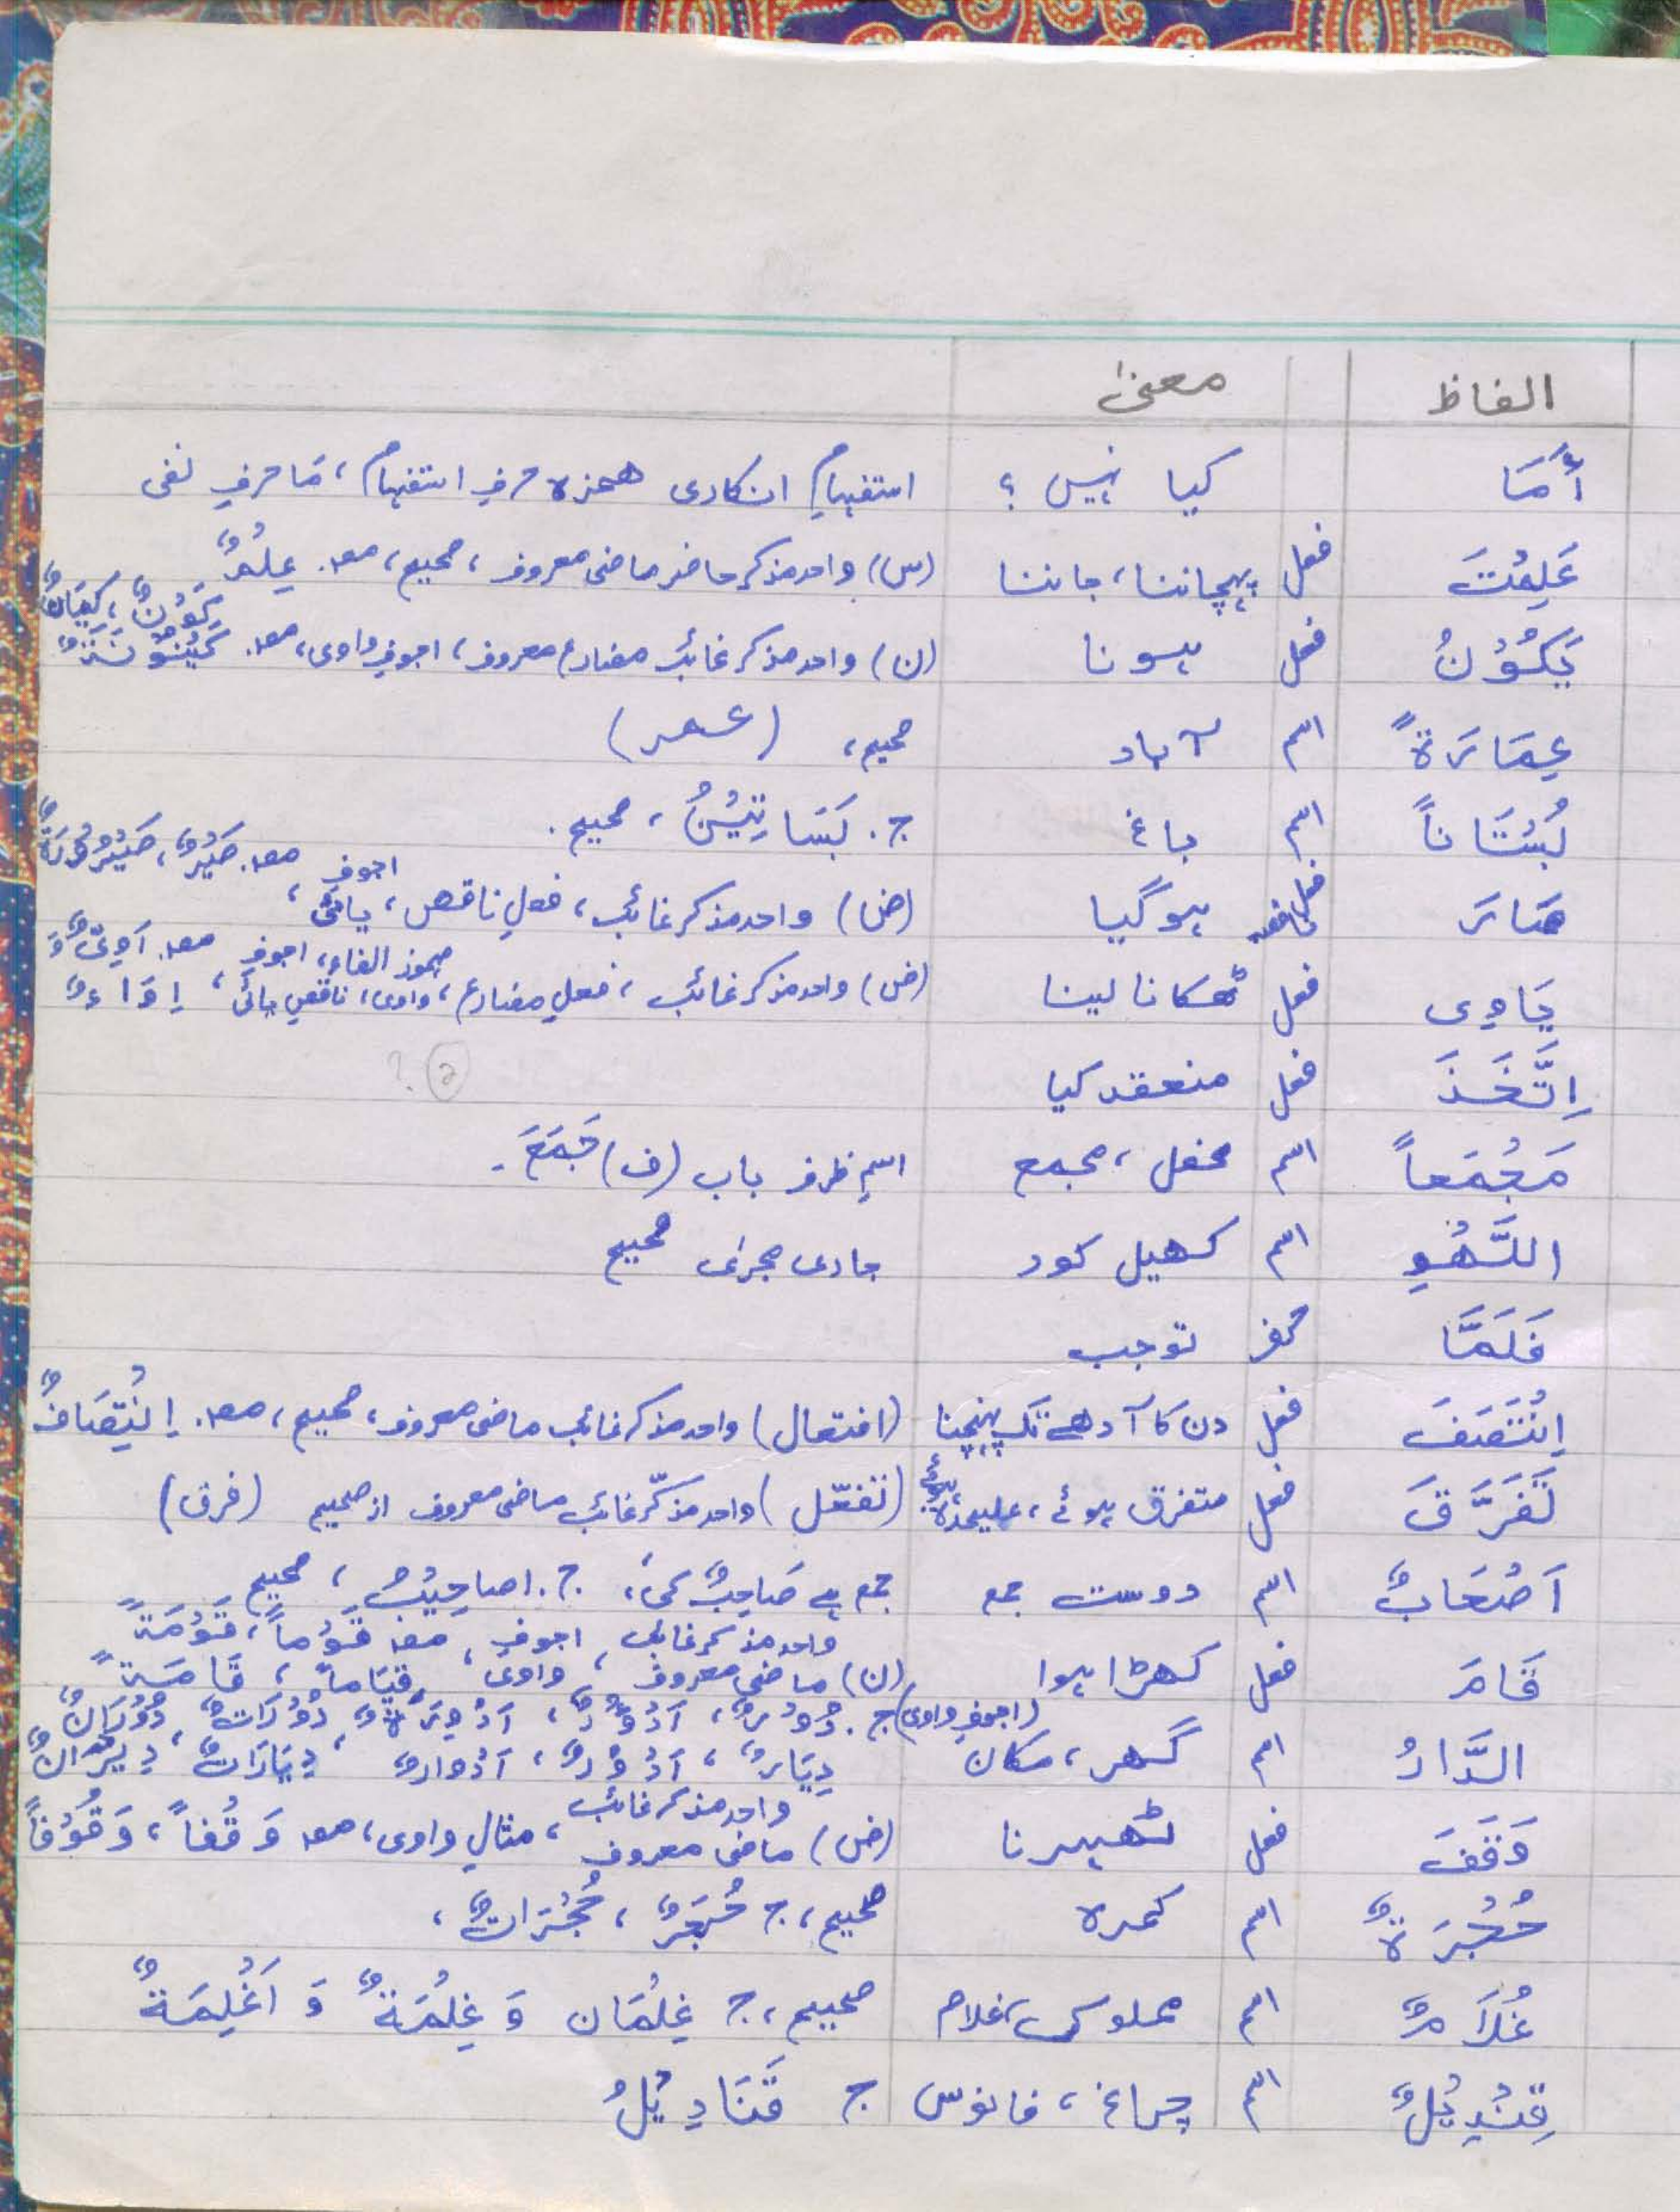 الفاظ معنیٰ
أَمَا کیا نہیں ؟ استفہامِ انکاری ھمزہ حرفِ استفہام، مَا حرفِ نفی
عَلِمْتَ فعل پہچاننا، جاننا (س) واحد مذکر حاضر ماضی معروف، صحیح، مصد. عِلْمٌ
یَکُوْنُ فعل ہونا (ن) واحد مذکر غائب مضارع معروف، اجوفِ واوی، مصد. کَوْنٌ، کِیَانٌ کَیْنُوْنَۃٌ
عِمَارَۃً اسم آباد صحیح، (عمر)
بُسْتَاناً اسم باغ ج. بَسَاتِیْنُ، صحیح.
صَارَ فعل ناقص ہوگیا (ض) واحد مذکر غائب، فعلِ ناقص، اجوفِ یائی، مصد. صَیْرٌ، صَیْرُوْرَۃٌ
یَاوِی فعل ٹھکانا لینا (ض) واحد مذکر غائب، فعلِ مضارع، مہموز الفاء، اجوفِ واوی، ناقصِ یائی، مصد. اَوِیٌّ وَ اِوَاءٌ
اِتَّخَذَ فعل منعقد کیا ?
مَجْمَعاً اسم محفل، مجمع اسمِ ظرف باب (ف) جَمَعَ.
اللَّھْوِ اسم کھیل کود جاری مجریٰ صحیح
فَلَمَّا حرف توجب
اِنْتَصَفَ فعل دن کا آدھے تک پہنچنا (افتعال) واحد مذکر غائب ماضی معروف، صحیح، مصد. اِنْتِصَافٌ
تَفَرَّقَ فعل متفرق ہوئے، علیحدہ ہوئے (تفعّل) واحد مذکّر غائب ماضی معروف از صحیح (فرق)
اَصْحَابٌ اسم دوست جمع جمع ہے صَاحِبٌ کی، ج. اصاحِیْبُ، صحیح
قَامَ فعل کھڑا ہوا (ن) واحد مذکر غائب ماضی معروف، اجوفِ واوی، مصد قَوْماً، قَوْمَۃً قِیَاماً، قَامَۃً
الدَّارُ اسم گھر، مکان (اجوفِ واوی) ج. دُوْرٌ، اَدْوُرٌ، اَدْوِرَۃٌ، دُوْرَاتٌ، دُوْرَانٌ
دِیَارٌ، اَدْوُرٌ، اَدْوارٌ، دِیَارَاتٌ، دِیْرَانٌ
وَقَفَ فعل ٹھہرنا (ض) واحد مذکر غائب ماضی معروف، مثالِ واوی، مصد وَقْفاً، وَقُوْفاً
حُجْرَۃٌ اسم کمرہ صحیح، ج حُجَرٌ، حُجْرَاتٌ،
غُلَامٌ اسم مملوک، غلام صحیح، ج غِلْمَان وَ غِلْمَۃٌ وَ اَغْلِمَۃٌ
قِنْدِیْلٌ اسم چراغ، فانوس ج قَنَادِیْلُ